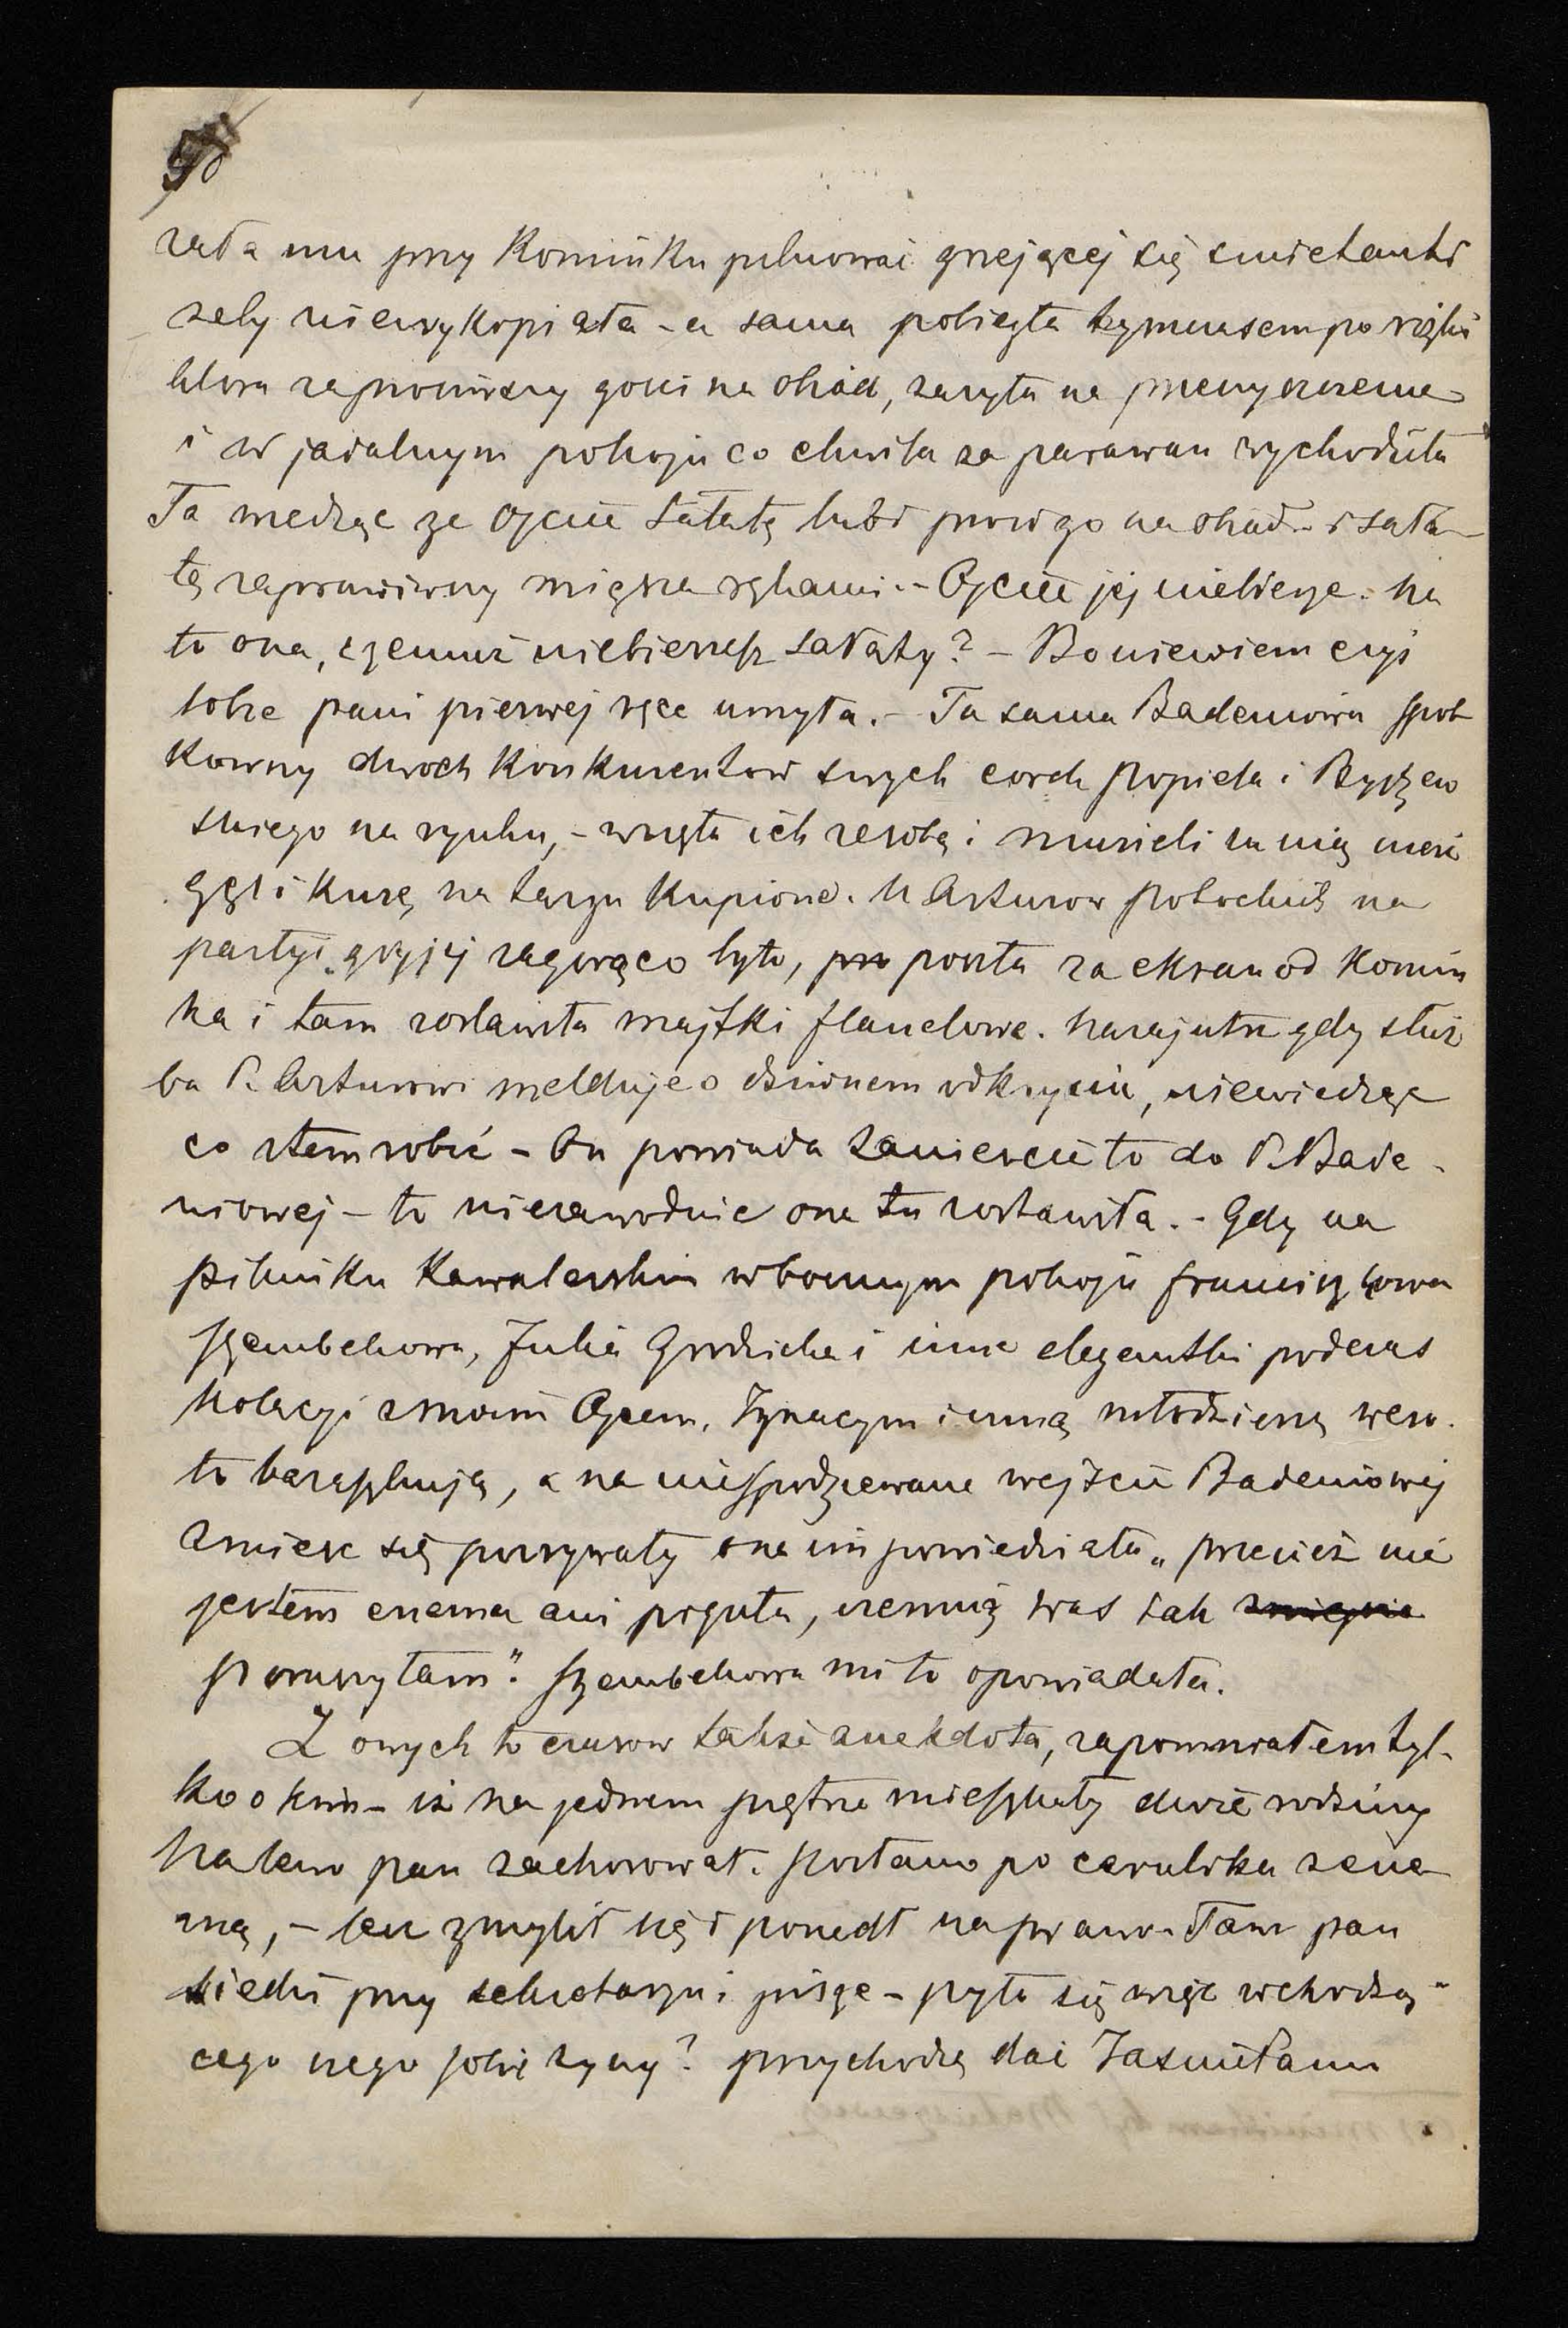 50
zała mu przy Kominku pilnować grzejącej się smietanki
zeby niewykipiała – a sama pobiegła tymczasem po rózgi
która zaprosiwszy gości na obiad, zazyła na przeczyszczenie
i w jadalnym pokoju co chwila za parawan wychodziła
Ta wiedząc ze Ojciec sałatę lubi prosi go na obiad – i sała-
tę zaprawiwszy miesza rękami. – Ojciec jej niebierze. Na
to ona, czemuz niebierzesz sałaty? – Bo niewiem czyś
sobie pani pierwej ręce umyła. – Ta sama Badeniowa spot
kawszy dwoch Konkurentow swych corek Popiela i Bystrzo
skiego na rynku, – wzięła ich ze sobą i musieli za nią nieść
gęś i kurę na targu kupione. U Arturow Potockich na
partyi, gdy jej zagorąco było, poszła za ekran od Komin
ka i tam zostawiła majtki flanelowe. Nazajutrz gdy służ
ba P. Arturowi melduje o dziwnem odkryciu, niewiedząc
co ztem robić – On powiada zaniescie to do P. Bade-
niowej – to niezawodnie ona tu zostawiła. – Gdy na
pikniku Kawalerskim w bocznym pokoju Franciszkowa
Szembekowa, Julia Grodzicka i inne elegantki podczas
Kolacyi z moim Ojcem, Ignacym i inną młodzierzą weso-
ło baraszkują, a na niespodziewane wejście Badeniowej
zmieszane się porywały ona im powiedziała „przecież nie
jestem enema ani piguła, czemuż was tak
poruszyłam". Szembekowa mi to opowiadała.
Z owych to czasow także anekdota, zapomniałem tyl-
ko o kim – iż na jednem piętrze mieszkały dwie rodziny
Na lewo pan zachorował. Posłano po cerulika z ene-
mą, – ten zmylił się i poszedł na prawo. Tam pan
siedzi przy sekretarzu i pisze – pyta się więc wchodzą-
cego czego sobie zyczy? przychodzę dać Jasnie Panu